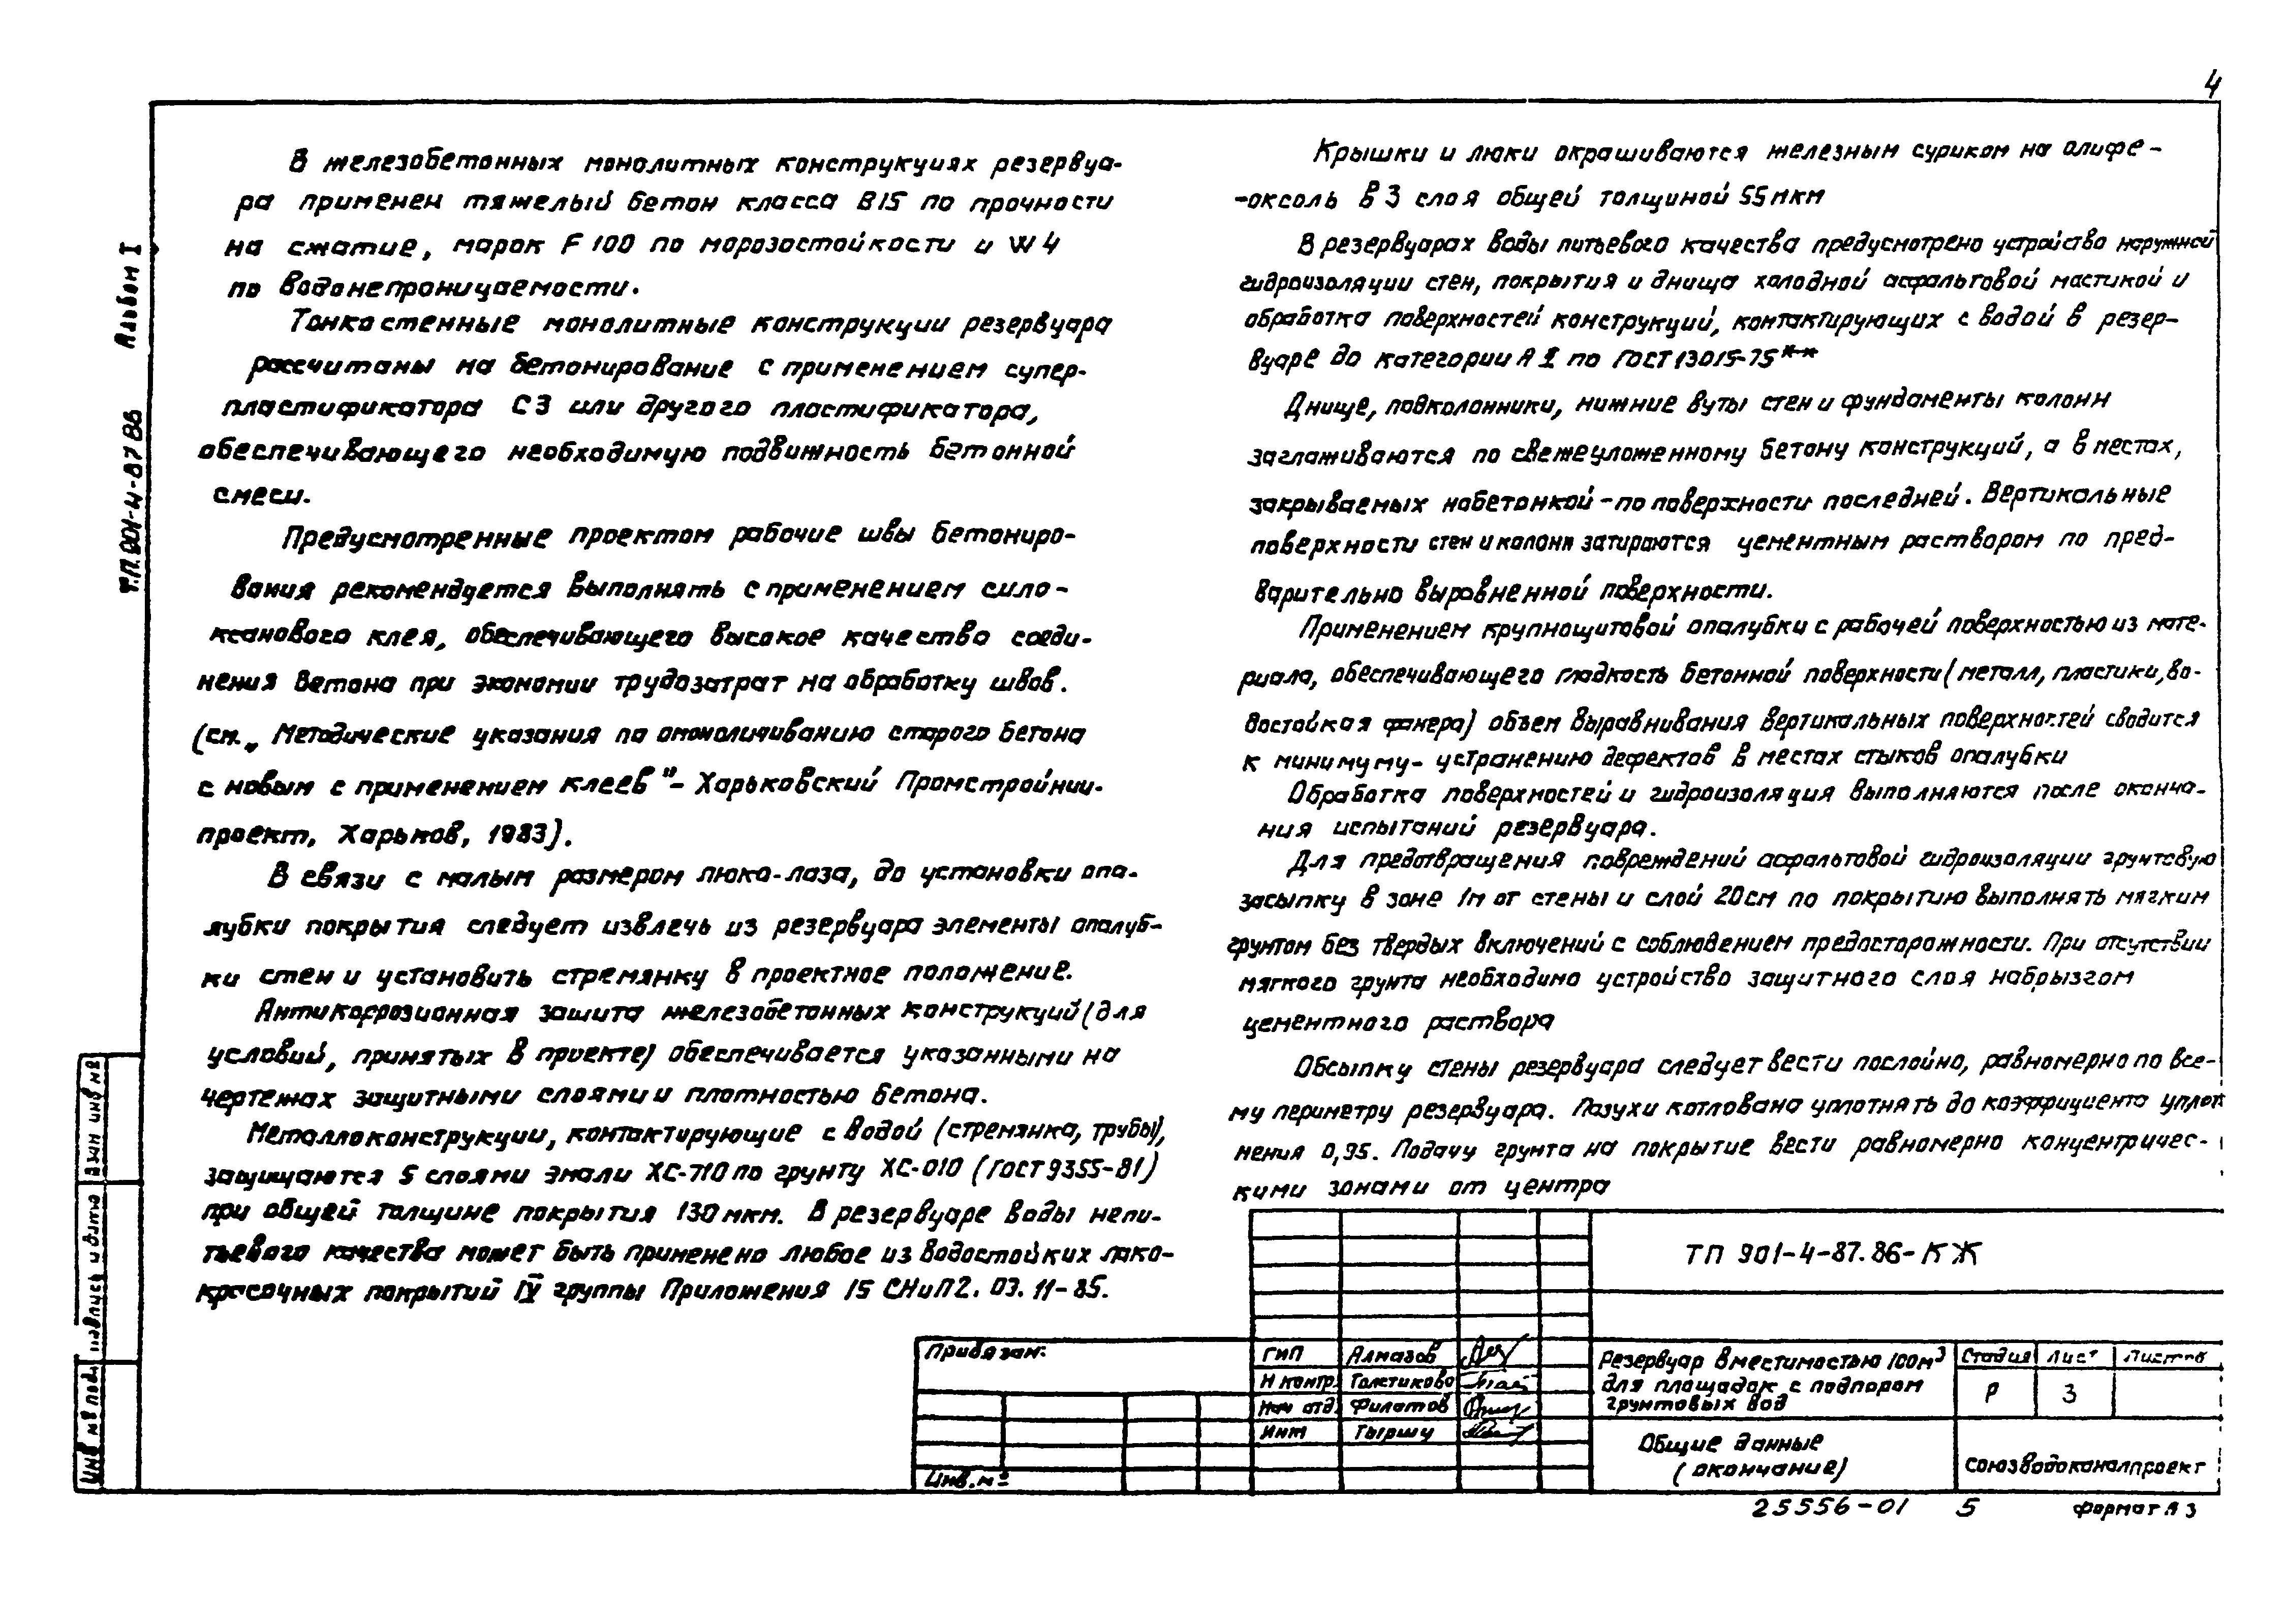 4
В железобетонных монолитных конструкциях резервуа-
ра применен тяжелый бетон класса В15 по прочности
на сжатие, марок F 100 по морозостойкости и W4
по водонепроницаемости.
Тонкостенные монолитные конструкции резервуара
рассчитаны на бетонирование с применением супер-
пластификатора С3 или другого пластификатора,
обеспечивающего необходимую подвижность бетонной
смеси.
Предусмотренные проектом рабочие швы бетониро-
вания рекомендуется выполнять с применением сило-
ксанового клея, обеспечивающего высокое качество соеди-
нения бетона при экономии трудозатрат на обработку швов.
(см. „Методические указания по омоноличиванию старого бетона
с новым с применением клеев"- Харьковский Промстройнии-
проект, Харьков, 1983).
В связи с малым размером люка-лаза, до установки опа-
лубки покрытия следует извлечь из резервуара элементы опалуб-
ки стен и установить стремянку в проектное положение.
Антикоррозионная защита железобетонных конструкций (для
условий, принятых в проекте) обеспечивается указанными на
чертежах защитными слоями и плотностью бетона.
Металлоконструкции, контактирующие с водой (стремянка, трубы),
защищаются 5 слоями эмали ХС-710 по грунту ХС-010 (ГОСТ 9355-81)
при общей толщине покрытия 130 мкм. В резервуаре воды непи-
тьевого качества может быть применено любое из водостойких лако-
красочных покрытий IV группы Приложения 15 СНиП 2.03.11-85.
Крышки и люки окрашиваются железным суриком на олифе-
-оксоль в 3 слоя общей толщиной 55 мкм
В резервуарах воды питьевого качества предусмотрено устройство наружной
гидроизоляции стен, покрытия и днища холодной асфальтовой мастикой и
обработка поверхностей конструкций, контактирующих с водой в резер-
вуаре до категории А I по ГОСТ 13015-75**
Днище, подколонники, нижние вуты стен и фундаменты колонн
заглаживаются по свежеуложенному бетону конструкций, а в местах,
закрываемых набетонкой - по поверхности последней. Вертикальные
поверхности стен и колонн затираются цементным раствором по пред-
варительно выровненной поверхности.
Применением крупнощитовой опалубки с рабочей поверхностью из мате-
риала, обеспечивающего гладкость бетонной поверхности (металл, пластики, во-
достойкая фанера) объем выравнивания вертикальных поверхностей сводится
к минимуму- устранению дефектов в местах стыков опалубки
Обработка поверхностей и гидроизоляция выполняются после оконча-
ния испытаний резервуара.
Для предотвращения повреждений асфальтовой гидроизоляции грунтовую
засыпку в зоне 1м от стены и слой 20см по покрытию выполнять мягким
грунтом без твердых включений с соблюдением предосторожности. При отсутствии
мягкого грунта необходимо устройство защитного слоя набрызгом
цементного раствора
Обсыпку стены резервуара следует вести послойно, равномерно по все-
му периметру резервуара. Пазухи котлована уплотнять до коэффициента уплот
нения 0,95. Подачу грунта на покрытие вести равномерно концентричес-
кими зонами от центра
Т.П. 901-4-87 86 Альбом I
Взам инв №
Подпись и дата
Инв № подл
Привязан:
Инв. №
ТП 901-4-87.86-КЖ
ГИП Алмазов
Н контр. Толстикова
Нач отд. Филатов
Инж Тыршу
Резервуар вместимостью 100м³
для площадок с подпором
грунтовых вод
Стадия Лист Листов
Р 3
Общие данные
(окончание)
Союзводоканалпроект
25556-01 5 Формат А 3